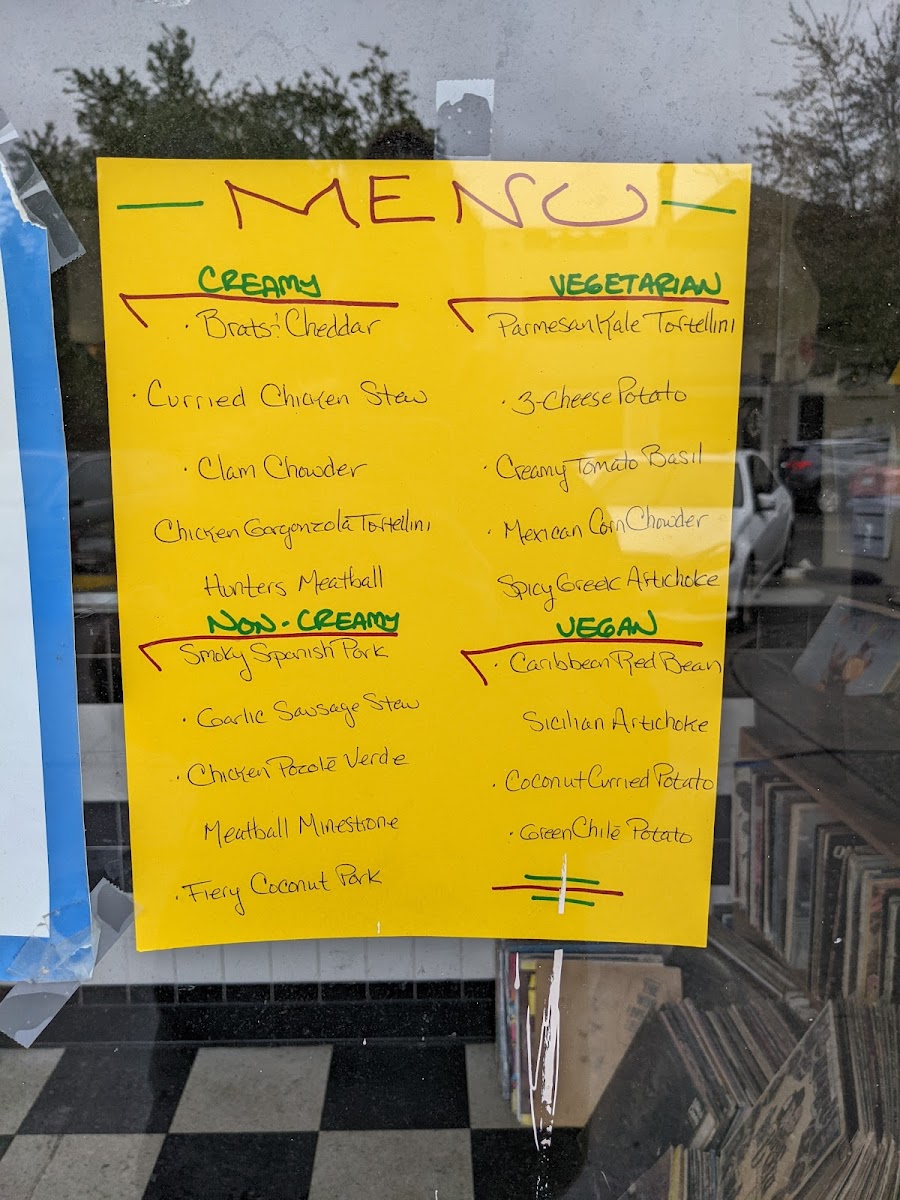 — MENU —
CREAMY
· Brats & Cheddar
· Curried Chicken Stew
· Clam Chowder
Chicken Gorgonzola Tortellini
Hunters Meatball
NON-CREAMY
Smoky Spanish Pork
· Garlic Sausage Stew
· Chicken Pozolé Verde
Meatball Minestrone
· Fiery Coconut Pork
VEGETARIAN
Parmesan Kale Tortellini
· 3-Cheese Potato
· Creamy Tomato Basil
· Mexican Corn Chowder
Spicy Greek Artichoke
VEGAN
· Caribbean Red Bean
Sicilian Artichoke
· Coconut Curried Potato
· Green Chilé Potato